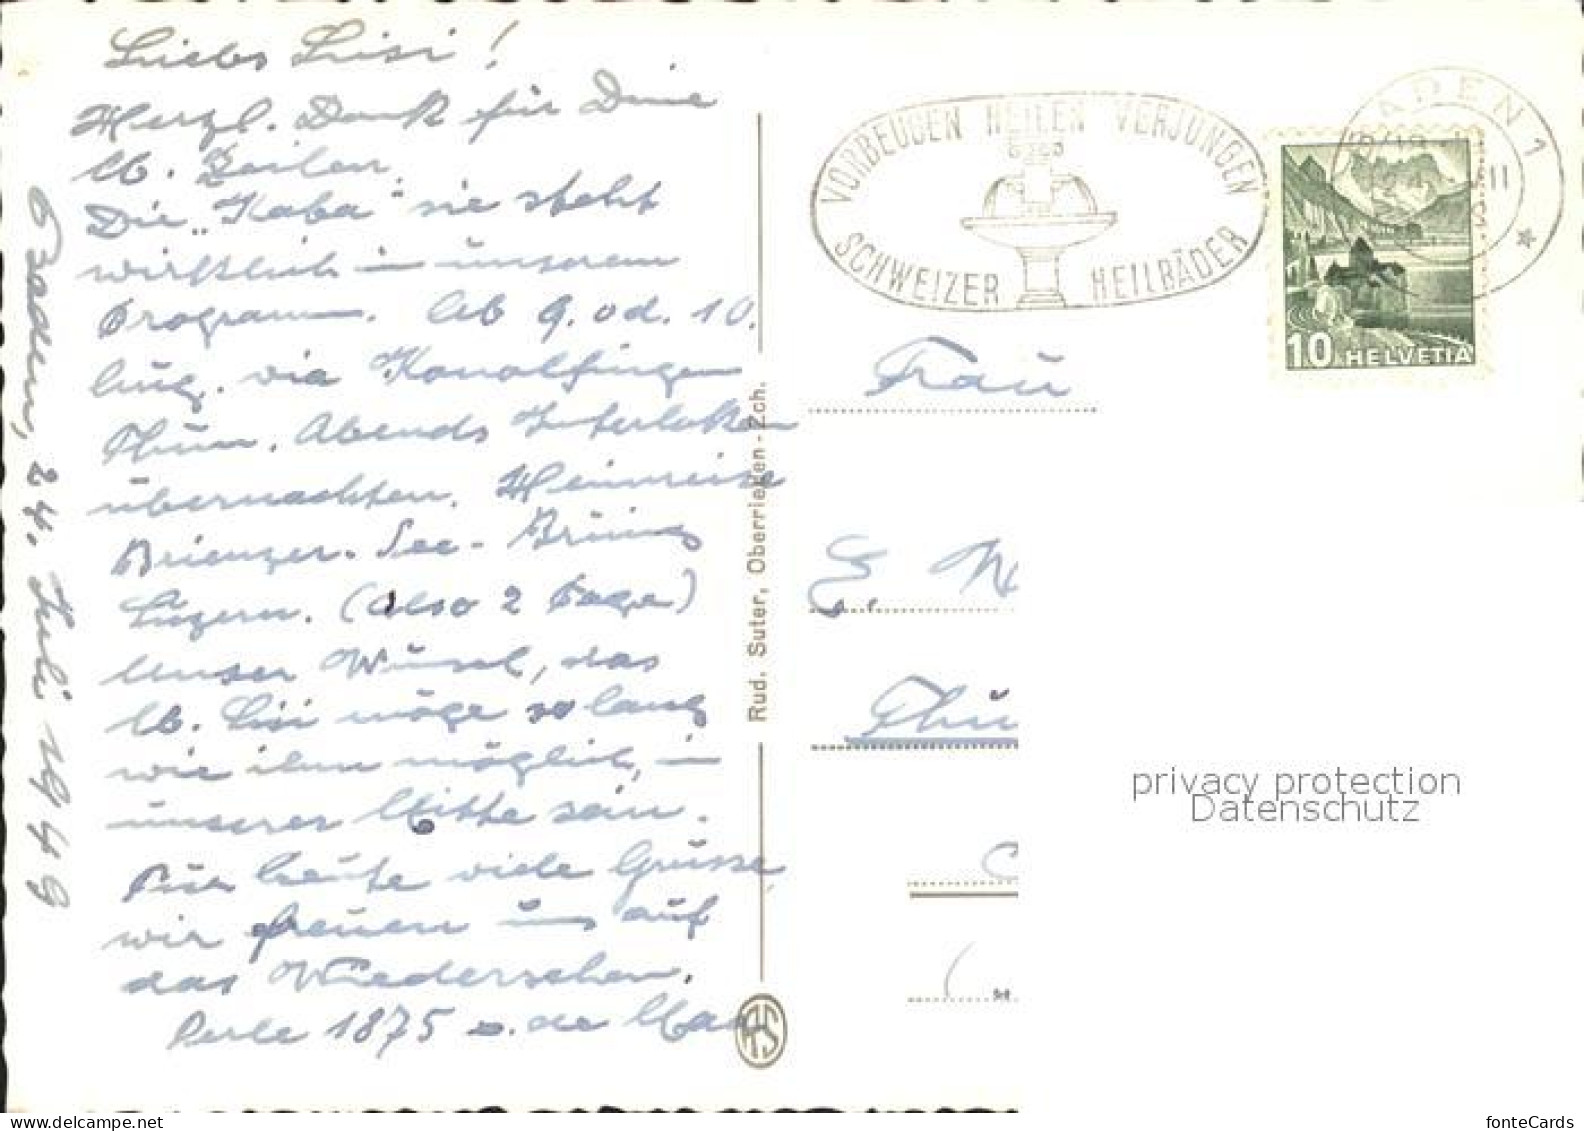 Liebs Lisi!
Herzl. Dank für Dine
lb. Zeilen.
Die „Kaba" sie steht
wirklich in unserem
Programm. Ab 9. od. 10.
Aug. via Konolfingen
Thun. Abends Interlaken
übernachten. Heimreise
Brienzer-See-Brünig
Luzern. (also 2 Tage)
Unser Wunsch, das
lb. Lisi möge so lang
wie ihm möglich, in
unserer Mitte sein.
Für heute viele Grüsse,
wir freuen uns auf
das Wiedersehen.
Perle 1875
Baden, 24. Juli 1949
Rud. Suter, Oberrieden-Zch.
RS
VORBEUGEN HEILEN VERJÜNGEN
SCHWEIZER HEILBÄDER
BADEN 1
10 HELVETIA
Frau
E.
privacy protection
Datenschutz
fonteCards